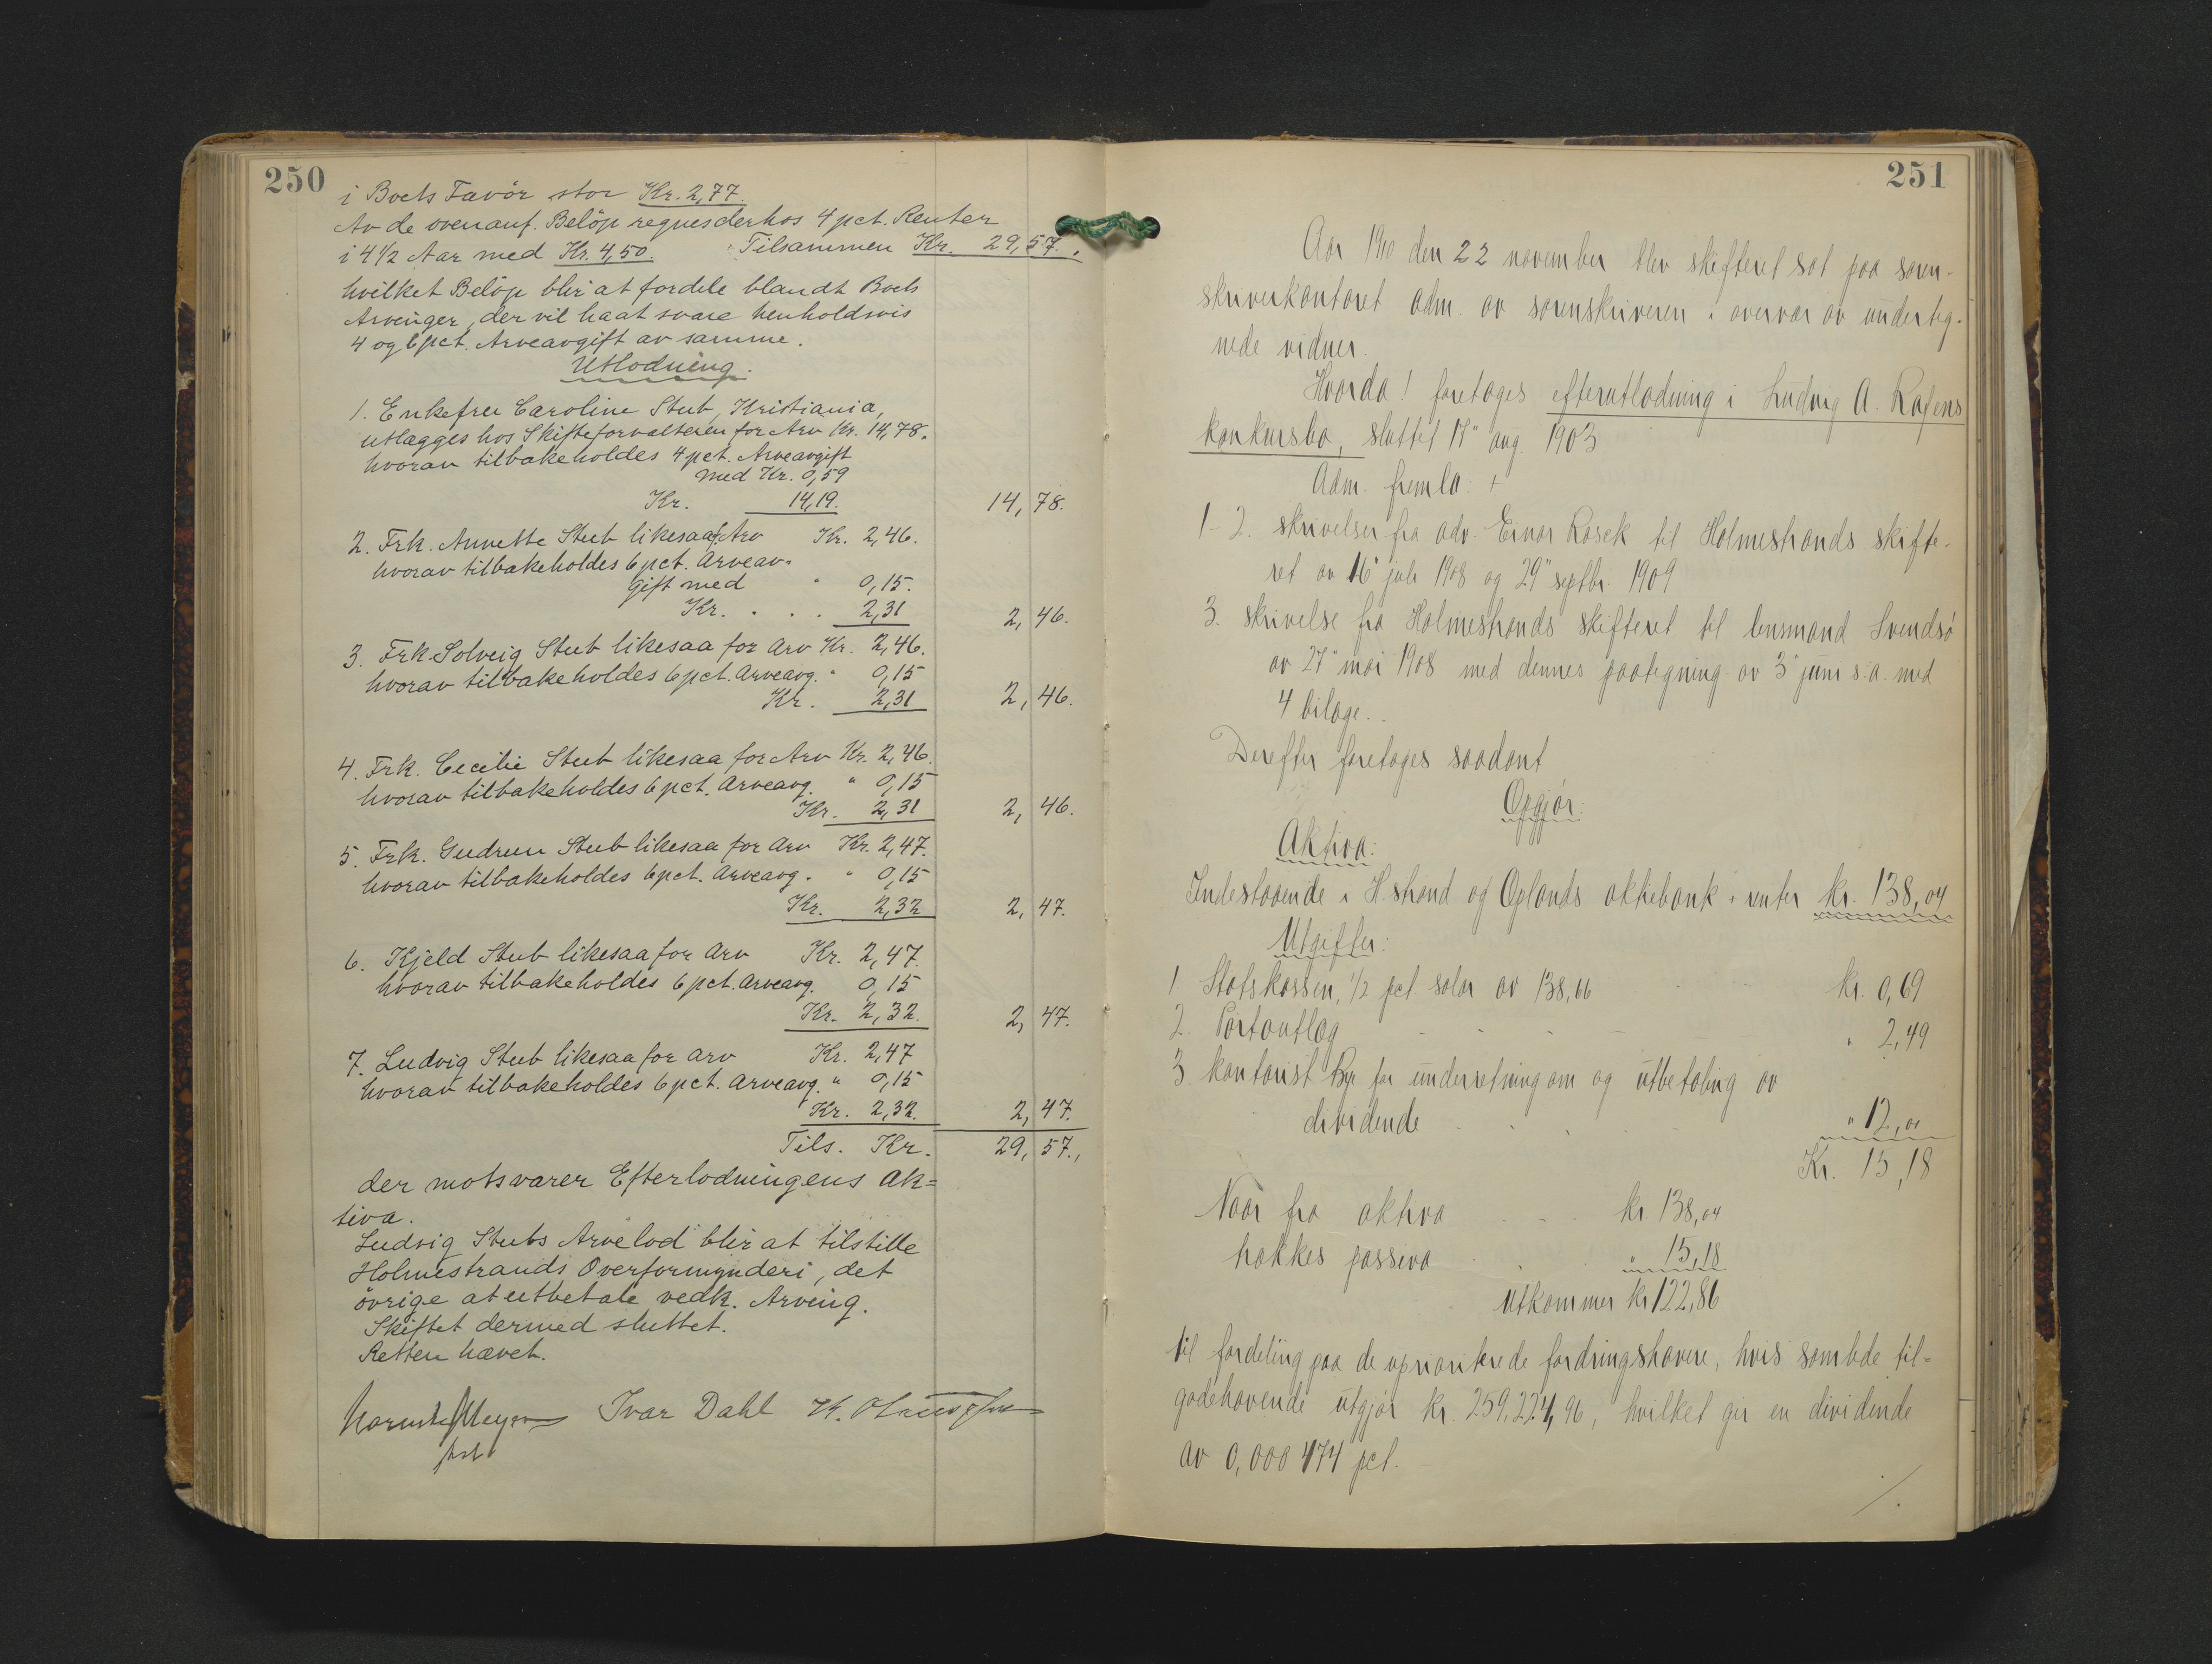 250
i Boets Favör stor Kr. 2,77.
Av de ovenanf. Belöp regnes derhos 4 pct. Renter
i 4 1/2 Aar med Kr. 4,50. Tilsammen Kr. 29,57.,
hvilket Belöp blir at fordele blandt Boets
Arvinger, der vil ha at svare henholdsvis
4 og 6 pct. Arveavgift av samme.
Utlodning.
1. Enkefru Caroline Stub, Kristiania,
utlægges hos Skifteforvalteren for Arv Kr. 14,78.
hvorav tilbakeholdes 4 pct. Arveavgift
med Kr. 0,59
Kr. 14,19. 14,78.
2. Frk. Annette Stub likesaa f. Arv Kr. 2,46.
hvorav tilbakeholdes 6 pct. Arveav-
gift med " 0,15.
Kr. . . . 2,31 2,46.
3. Frk. Solveig Stub likesaa for Arv Kr. 2,46.
hvorav tilbakeholdes 6 pct. Arveavg. " 0,15
Kr. 2,31 2,46.
4. Frk. Cecilie Stub likesaa for Arv Kr. 2,46.
hvorav tilbakeholdes 6 pct. Arveavg. " 0,15
Kr. 2,31 2,46.
5. Frk. Gudrun Stub likesaa for Arv Kr. 2,47.
hvorav tilbakeholdes 6 pct. Arveavg. " 0,15
Kr. 2,32 2,47.
6. Kjeld Stub likesaa for Arv Kr. 2,47.
hvorav tilbakeholdes 6 pct. Arveavg. 0,15
Kr. 2,32. 2,47.
7. Ludvig Stub likesaa for Arv Kr. 2,47
hvorav tilbakeholdes 6 pct. Arveavg. " 0,15
Kr. 2,32. 2,47.
Tils. Kr. 29,57.,
der motsvarer Efterlodningens Ak=
tiva.
Ludvig Stubs Arvelod blir at tilstille
Holmestrands Overformynderi, det
övrige at utbetale vedk. Arving.
Skiftet dermed sluttet.
Retten hævet.
Ivar Dahl
251
Aar 1910 den 22 november blev skifteret sat paa soren-
skriverkontoret adm. av sorenskriveren i overvær av underteg-
nede vidner.
Hvorda! foretages efterutlodning i Ludvig A. Rafens
konkursbo, sluttet 17" aug. 1903
Adm. fremla:
1-2. skrivelser fra adv. Einar Rosek til Holmestrands skifte-
ret av 16" juli 1908 og 29" septbr. 1909
3. skrivelse fra Holmestrands skifteret til lensmand Svendsö
av 27" mai 1908 med dennes paategning av 3" juni s.a. med
4 bilage.
Derefter foretages saadant
Opgjør:
Aktiva:
Indestaaende i H.strand og Oplands aktiebank + renter kr. 138,04
Utgifter:
1. Statskassen, 1/2 pct. salær av 138,06 kr. 0,69
2. Portoutlæg " 2,49
3. kontorist By for underretning om og utbetaling av
dividende " 12,00
Kr. 15,18
Naar fra aktiva kr. 138,04
trækkes passiva " 15,18
utkommer kr 122,86
til fordeling paa de upriorikrede fordringshavere, hvis samlede til-
godehavende utgjør kr. 259,224,96, hvilket gir en dividende
av 0,000474 pct.